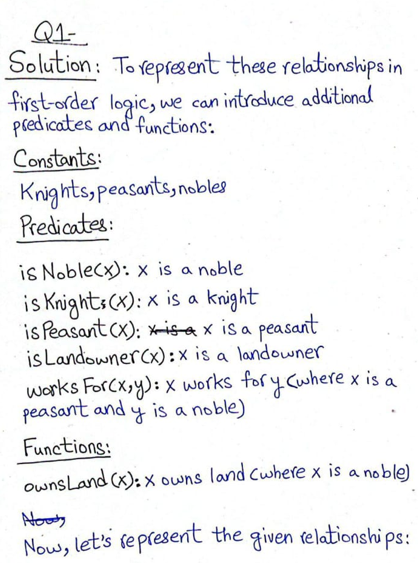 Q1-
Solution: To represent these relationships in
first-order logic, we can introduce additional
predicates and functions:
Constants:
Knights, peasants, nobles
Predicates:
isNoble(x): x is a noble
isKnights(x): x is a knight
isPeasant(x): x is a x is a peasant
isLandowner(x): x is a landowner
worksFor(x,y): x works for y (where x is a
peasant and y is a noble)
Functions:
ownsLand(x): x owns land (where x is a noble)
Now,
Now, let's represent the given relationships: